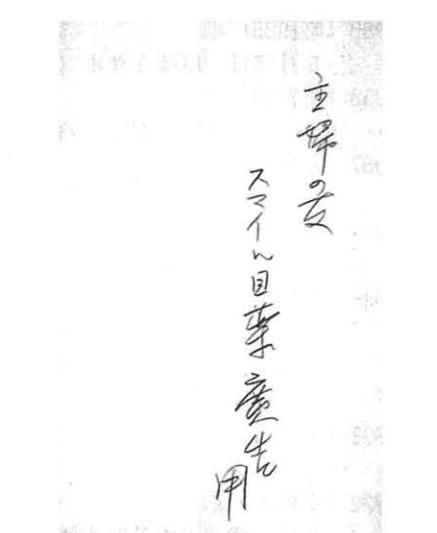 主婦の友
スマイル目薬廣告用